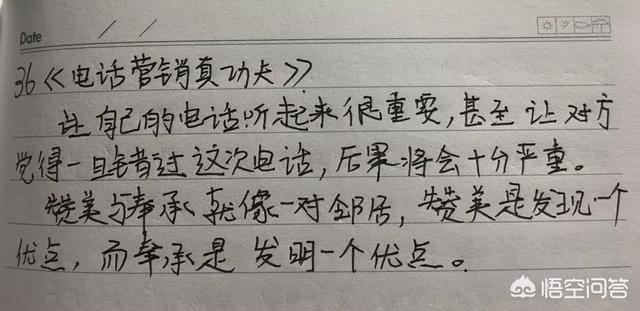 Date / /
36《电话营销真功夫》
让自己的电话听起来很重要,甚至让对方
觉得一旦错过这次电话,后果将会十分严重。
赞美与奉承就像一对邻居,赞美是发现一个
优点,而奉承是发明一个优点。
悟空问答